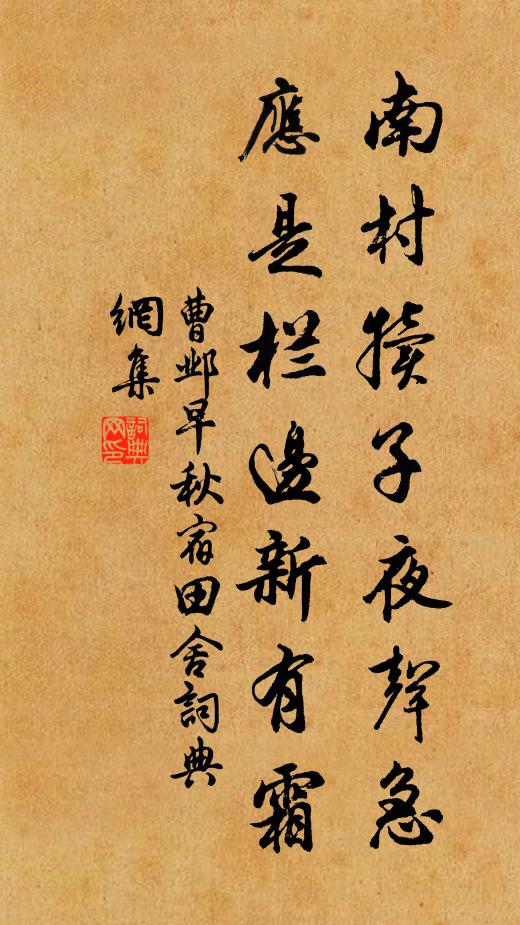 南村犢子夜聲急
應是栏邊新有霜
曹邺早秋宿田舍詞典
網集
詞典
网印